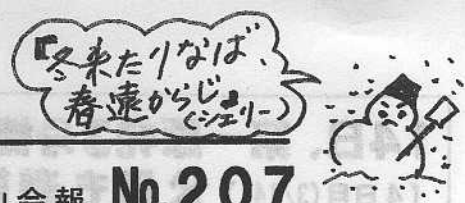 『冬来たりなば、
春遠からじ』
(シェリー)
会報 No.207